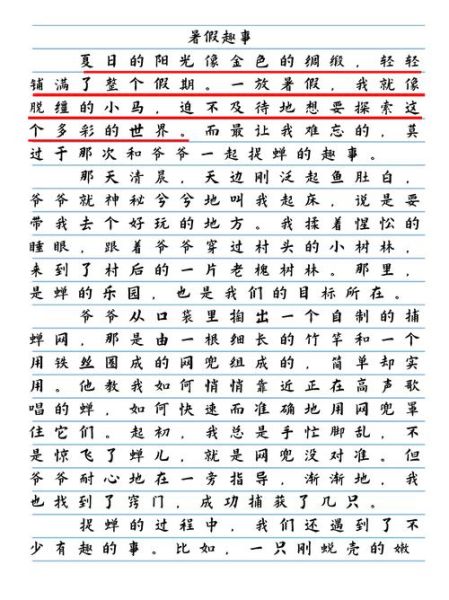 暑假趣事
夏日的阳光像金色的绸缎，轻轻
铺满了整个假期。一放暑假，我就像
脱缰的小马，迫不及待地想要探索这
个多彩的世界。而最让我难忘的，莫
过于那次和爷爷一起捉蝉的趣事。
那天清晨，天边刚泛起鱼肚白，
爷爷就神秘兮兮地叫我起床，说是要
带我去个好玩的地方。我揉着惺忪的
睡眼，跟着爷爷穿过村头的小树林，
来到了村后的一片老槐树林。那里，
是蝉的乐园，也是我们的目标所在。
爷爷从口袋里掏出一个自制的捕
蝉网，那是由一根细长的竹竿和一个
用铁丝围成的网兜组成的，简单却实
用。他教我如何悄悄靠近正在高声歌
唱的蝉，如何快速而准确地用网兜罩
住它们。起初，我总是手忙脚乱，不
是惊飞了蝉儿，就是网兜没对准。但
爷爷耐心地在一旁指导，渐渐地，我
也找到了窍门，成功捕获了几只。
捉蝉的过程中，我们还遇到了不
少有趣的事。比如，一只刚蜕壳的嫩